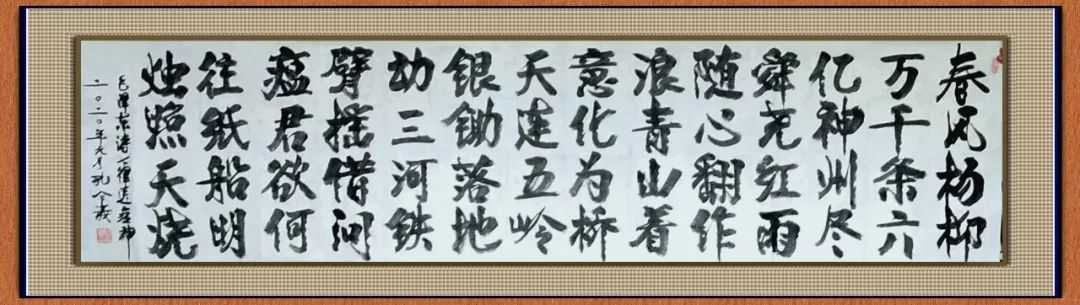 春风杨柳
万千条六
亿神州尽
舜尧红雨
随心翻作
浪青山着
意化为桥
天连五岭
银锄落地
动三河铁
臂摇借问
瘟君欲何
往纸船明
烛照天烧
毛泽东诗七律送瘟神
二〇二〇年